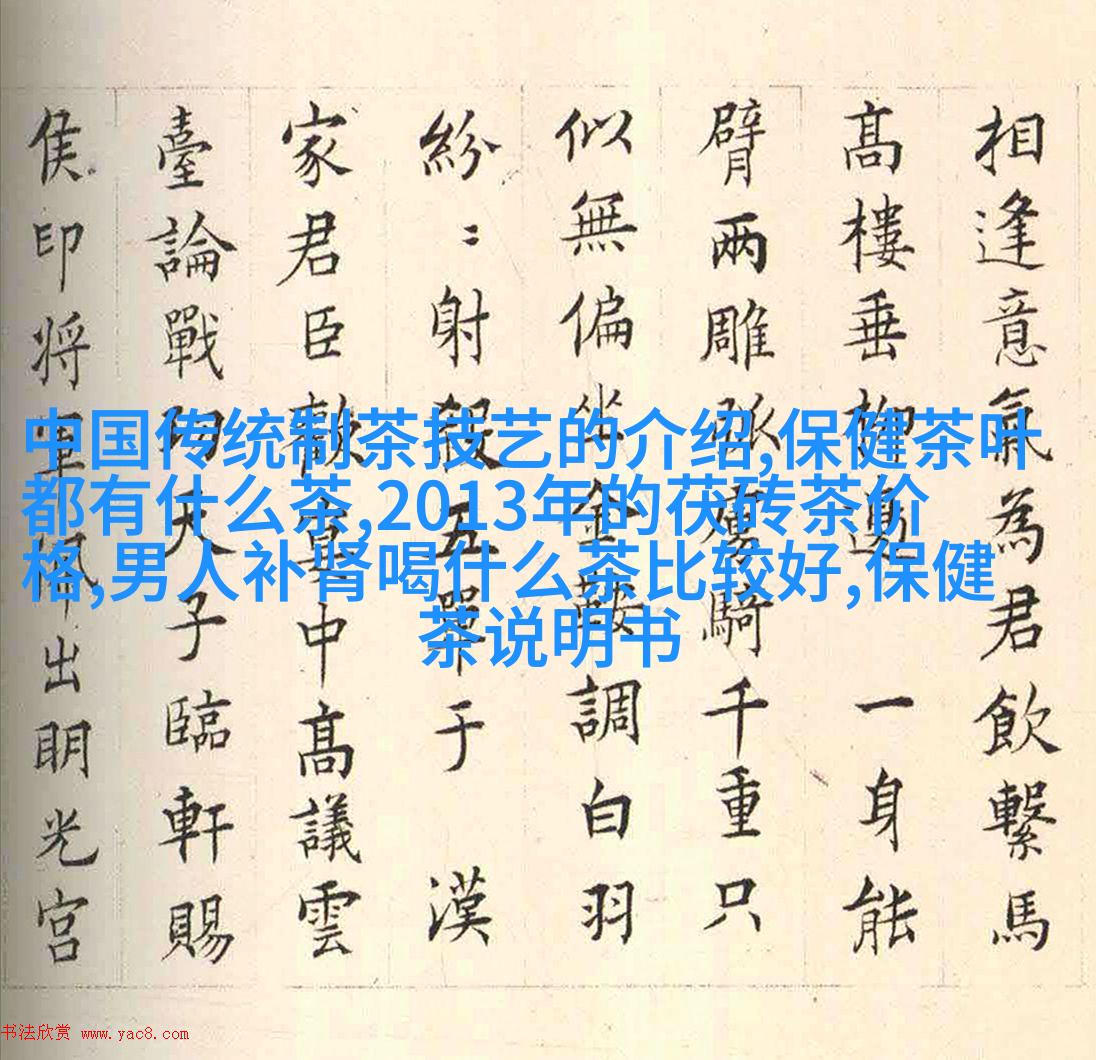 相逢意氣為君飲繫馬
髙樓垂柳邊 一身能
臂兩雕弧虜騎千重只
似無偏坐金鞍調白羽
紛〻射殺五單于 漢
家君臣歡宴中髙議雲
臺論戰功天子臨軒賜
侯印将軍佩出明光宮
中国传统制茶技艺的介绍,保健茶叶
都有什么茶,2013年的茯砖茶价
格,男人补肾喝什么茶比较好,保健
茶说明书
书法欣赏 www.yac8.com